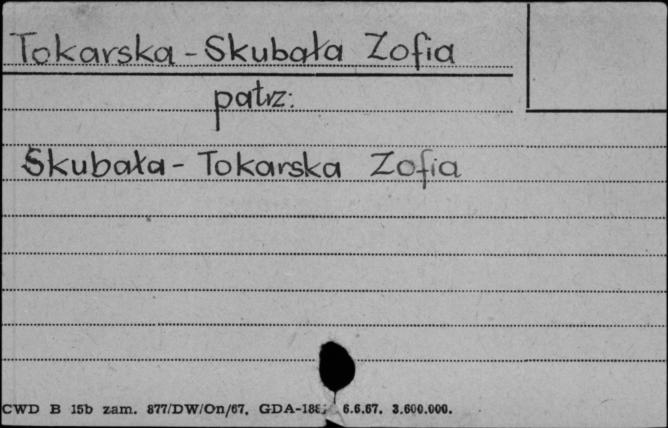 Tokarska - Skubała Zofia
patrz:
Skubała - Tokarska Zofia
CWD B 15b zam. 877/DW/On/67. 6.6.67. 3.600.000.